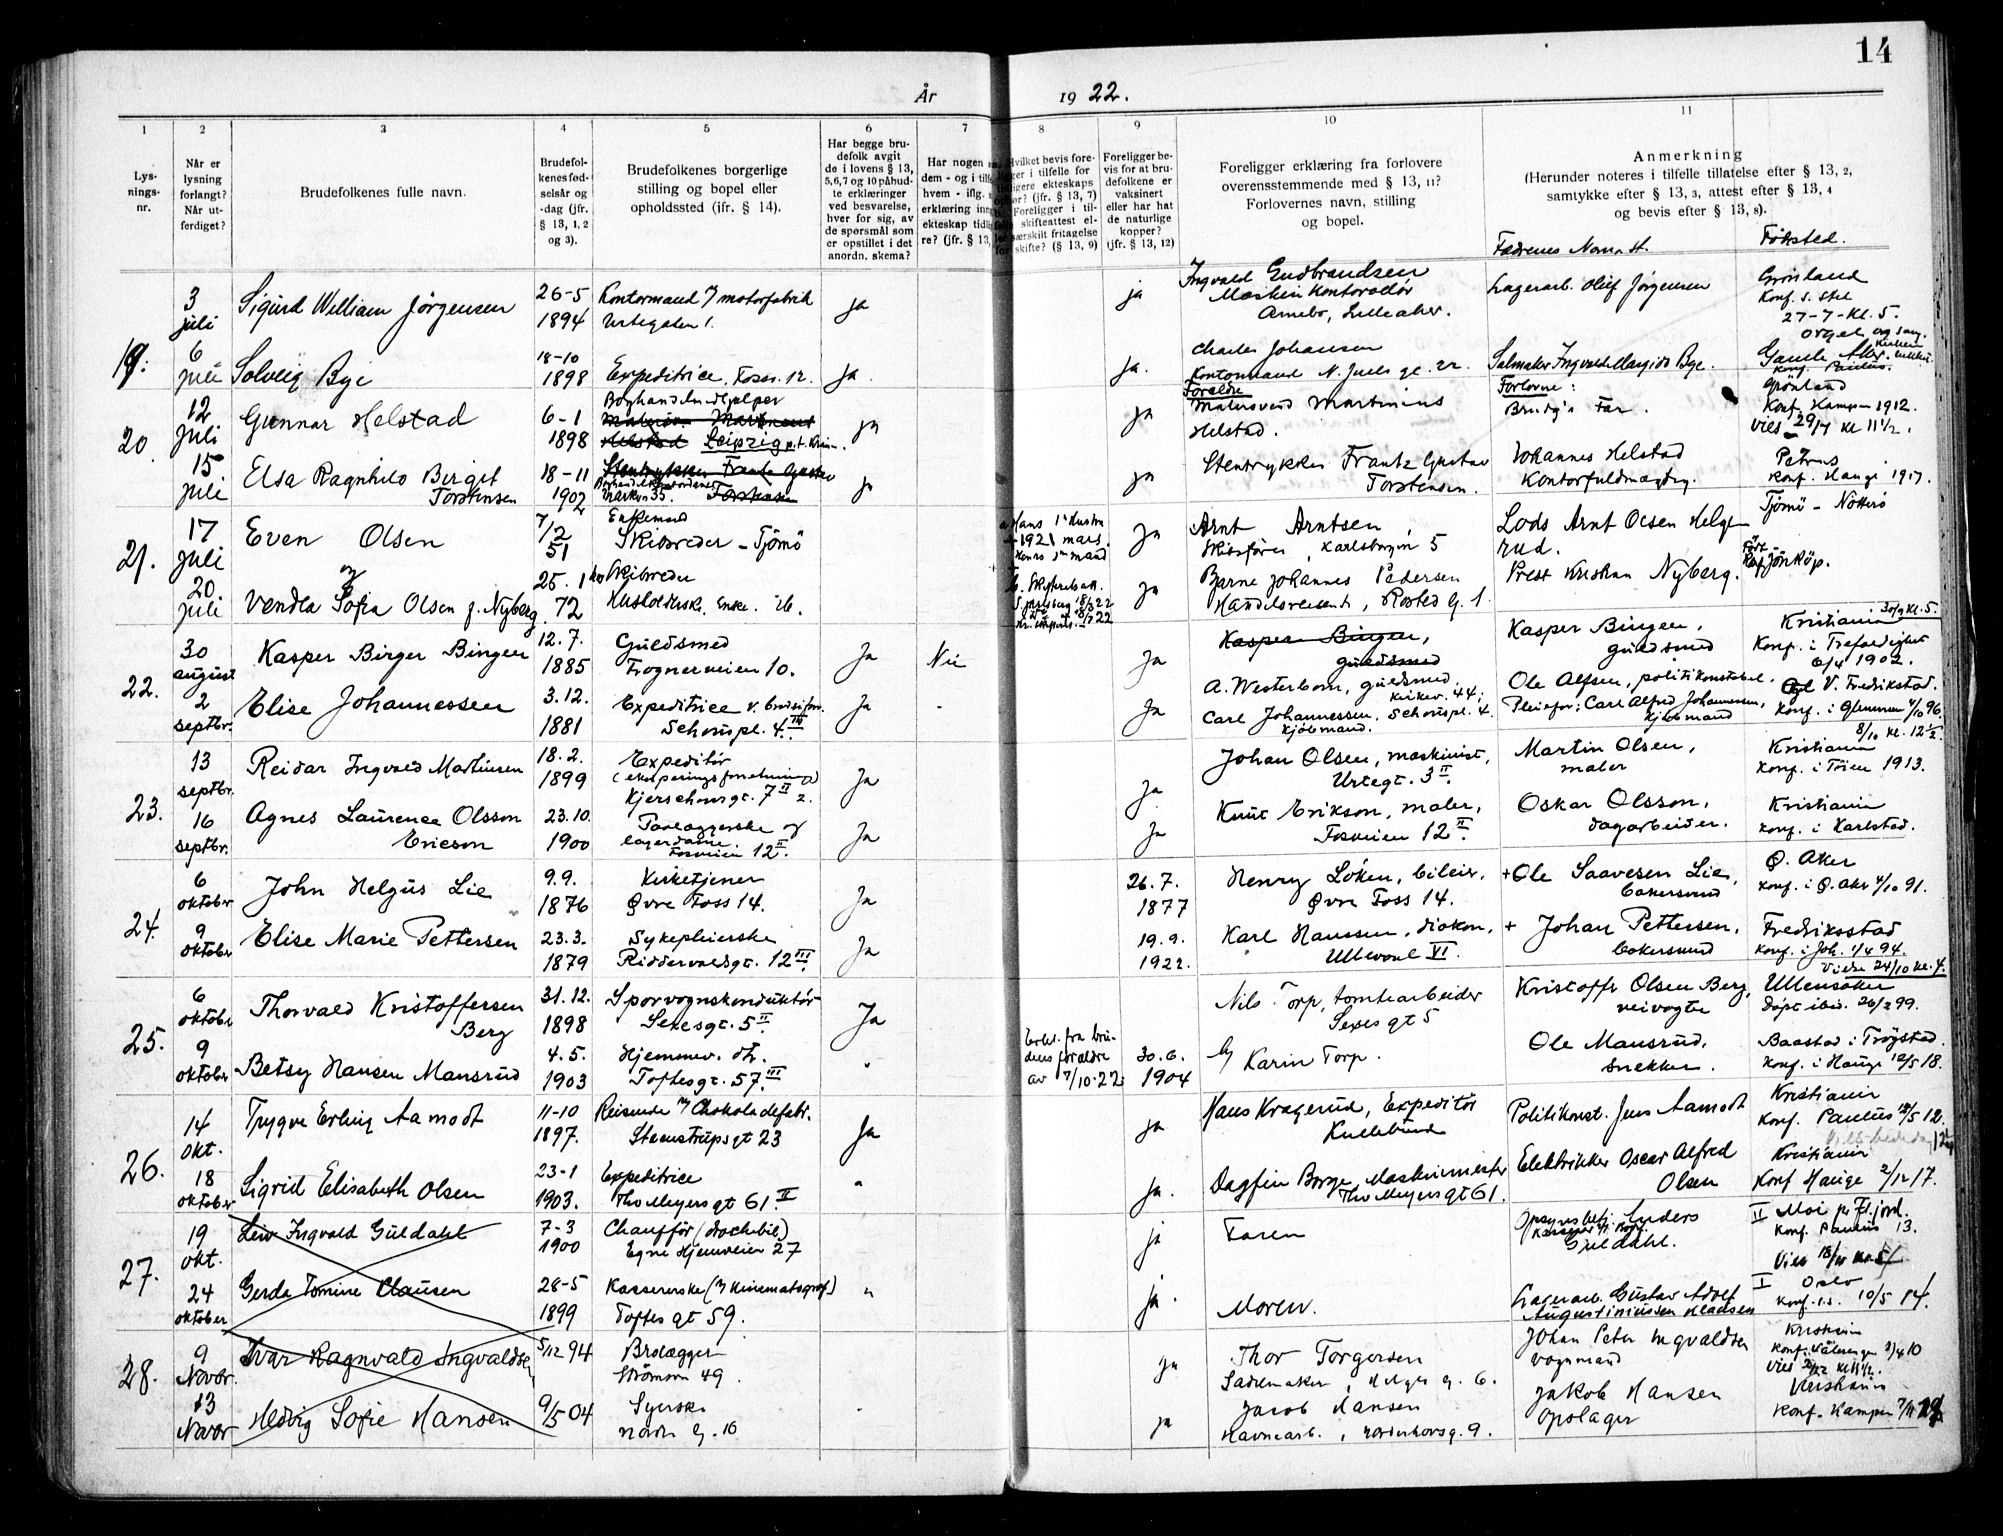 14
År 1922.
1 2 3 4 5 6 7 8 9 10 11
Lysningsnr.
Når er lysning forlangt? Når utferdiget?
Brudefolkenes fulle navn.
Brudefolkenes fødselsår og -dag (jfr. § 13, 1, 2 og 3).
Brudefolkenes borgerlige stilling og bopel eller opholdssted (ifr. § 14).
Har begge brudefolk avgit de i lovens § 13, 5,6,7 og 10 påhudte erklæringer ved besvarelse, hver for sig, av de spørsmål som er opstillet i det anordn. skema?
Har nogen
dem - og i
hvem - iflg.
erklæring
ekteskap
re? (jfr. § 13,
Hvilket bevis
i tilfelle for
ekteskaps
(jfr. § 13, 7)
Foreligger i
skifteattest
særskilt fritagelse
for skifte? (§ 13, 9)
Foreligger bevis for at brudefolkene er vaksinert eller har hat de naturlige kopper? (jfr. § 13, 12)
Foreligger erklæring fra forlovere overensstemmende med § 13, 11? Forlovernes navn, stilling og bopel.
Anmerkning
(Herunder noteres i tilfelle tillatelse efter § 13, 2, samtykke efter § 13, 3, attest efter § 13, 4 og bevis efter § 13, 8).
Fædrenes Navn st. Fødested.
19:
3 juli Sigurd William Jörgensen 26-5 1894 Kontormand motorfabrik Urtegaten 1. ja ja Ingvald Gudbrandsen Lagerarb. Oluf Jörgensen Grönland
27-7-Kl. 5.
6 juli Solveig Bye 18-10 1898 Expeditrice, Foss. 12. ja. ja. Charles Johansen Kontormand N. Juels gt. 22 Salmaker Ingvald Bye. Gamle Aker. Konf. Paulus.
20.
12 juli Gunnar Helstad 6-1 1898 Boghandlermedhjælper Leipzig ja ja Forældre Malersvend Martinius Helstad. Forlovne: Brudg's Far. Grönland Konf. Kampen 1912. Vies 29/7 kl 11½.
15 juli Elsa Ragnhild Birgit Torstensen 18-11 1902 Markvn 35. ja ja Stentrykker Frantz Gustav Torstensen. Johannes Helstad Kontorfuldmægtig. Petrus Konf. Hauge 1917.
21.
17 juli Even Olsen 7/2 51 Enkemand Skibsreder - Tjömö Hans 1ste Hustru + 1921 mars. ja Arnt Arntsen, Skibsförer, Karlsborgvn 5 Lods Arnt Olsen Helgerud. Tjömö - Nötterö
og
20. juli Vendla Sofia Olsen f. Nyberg 25. 1 72 Husholdersk. Enke. ib. ja Bjarne Johannes Pedersen Handelsreisende, Rosted g. 1. Prest Kristian Nyberg. Jönköp.
22.
30 august Kasper Birger Bingen 12.7. 1885 Guldsmed Frognerveien 10. Ja Nei Ja Kasper Bingen, guldsmed A. Westerbom, guldsmed, Kirkev. 44; Kasper Bingen, guldsmed Kristiania 30/9 kl. 5. Konf. i Trefoldighet 6/4 1902.
2 septbr. Elise Johannessen 3.12. 1881 Expeditrice Schouspl. 4. III Ja - Ja Carl Johannessen, Schouspl. 4. kjöbmand. Ole Alfsen, politikonstabel. Pleiefar: Carl Alfred Johannessen, kjöbmand V. Fredrikstad. Konf. i Glemmen 4/10 96.
23.
13 septbr. Reidar Ingvald Martinsen 18.2. 1899 Expeditör (ekspeditingsforretning) Kjerschowsgt. 7 II Ja Ja Johan Olsen, maskinist, Urtegt. 3 II. Martin Olsen, maler 8/10 kl. 12½. Kristiania konf. i Töien 1913.
16 septbr. Agnes Laurence Olsson Ericson 23.10. 1900 og lagerdame. Fosveien 12 II. Ja Ja Knut Erikson, maler, Fosveien 12 II. Oskar Olsson, dagarbeider. Kristiania konf. i Karlstad.
24.
6 oktober John Helgus Lie 9.9. 1876 Kirketjener Øvre Foss 14. Ja 26.7. 1877 Henry Löken, bileier, Øvre Foss 14. + Ole Saavesen Lie, bakersvend Ø. Aker konf. i Ø. Aker 4/10 91.
9 oktober Elise Marie Pettersen 23.3. 1879 Sykepleierske Riddervoldsgt. 12 III. Ja 19.9. 1922. Karl Hanssen, diakon, Ullevaal VI. + Johan Pettersen, bakersvend Fredriksstad konf. i Joh. 1/4 94.
25.
6 oktober Thorvald Kristoffersen Berg 31.12. 1898 Sporvognskonduktör Sexesgt. 5 II. Ja Nils Torp, tomtearbeider Sexesgt 5 Kristoffer Olsen Berg, veivogter Vielse 24/10 kl. 4. Ullensaker Döpt ibid. 26/2 99.
9 oktober Betsy Hansen Mansrud 4.5. 1903 Hjemmev. dtr. Toftesgt. 57. III Erkl. fra brudens forældre av 7/10-22 30.6. 1904 Karin Torp. Ole Mansrud, snekker. Baastad i Tröystad. Konf. i Hauge 12/5 18.
26.
14 okt. Trygve Erling Aamodt 11-10 1897. Reisende Chokoladefabr. Steenstrupsgt 23 Ja ja Hans Kragerud, Expeditör Politikonst. Jens Aamodt Kristiania Konf. Paulus 12/5 12.
18 oktober Sigrid Elisabeth Olsen 23-1 1903. Expeditrice Thv Meyers gt 61. II " ja. Dagfin Borge Maskinmester Thv Meyersgt 61. Elektrikker Oscar Alfred Olsen Kristiania Konf Hauge 2/12 17.
27.
19 okt. Leiv Ingvald Guldahl 7-3 1900 Chaufför (drochebil) Egne Hjemveien 27 ja Faren Guldahl. II Moi pr Fl.fjord. Konf. Paulus 13.
24 oktober Gerda Tomine Clausen 28-5 1899 Kassererske (Kinematograf) Toftes gt 59. " ja. Moren. Lagerarb. Gustav Adolf Augustiniussen Klausen I Oslo konf. i.s. 10/5 14.
28.
9 Novbr. Ivar Ragnvald Ingvaldsen 5/12 94 Brolægger Strömsvn 49. ja Thor Torgersen Sadelmaker, Helges g. 6. Johan Peter Ingvaldsen vognmand Kristiania Konf. Vålerenga 2/4 10
13 Novbr Hedvig Sofie Hansen 9/5 04 Syerske Nordr g. 10 ja Jacob Hansen Havnearb., Norderhovsg. 9. Jakob Hansen Opslager Kristiania Konf. Kampen